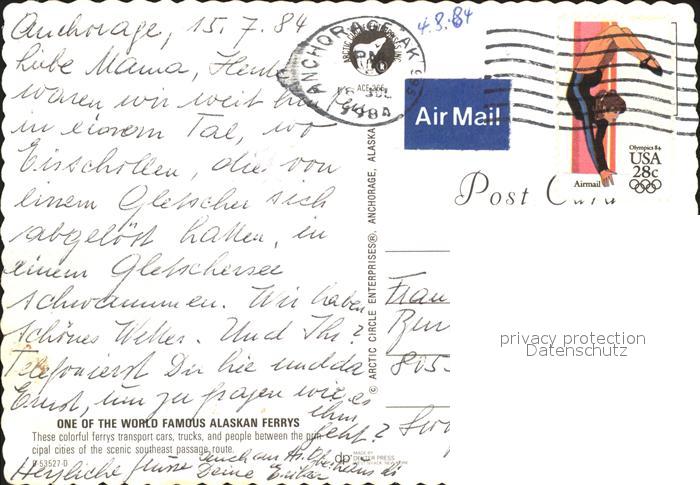 Anchorage, 15.7.84
Liebe Mama, Heute
waren wir weit
in einem Tal, wo
Eisschollen, die von
einem Gletscher sich
abgelöst hatten, in
einem Gletschersee
schwammen. Wir haben
schönes Wetter. Und Ihr?
Telefonierst Du hie und da
Ernst, um zu fragen wie es
ihm
geht?
Herzliche Grüsse auch an
Deine
ONE OF THE WORLD FAMOUS ALASKAN FERRYS
These colorful ferrys transport cars, trucks, and people between the prin-
cipal cities of the scenic southeast passage route.
53527-D
dp MADE BY
DEXTER PRESS
WEST NYACK, NEW YORK
© ARCTIC CIRCLE ENTERPRISES®, ANCHORAGE, ALASKA
ANCHORAGE, AK
PM
1984
4.8.84
Air Mail
Olympics 84
USA
28c
Airmail
Post Card
Frau
805-
privacy protection
Datenschutz